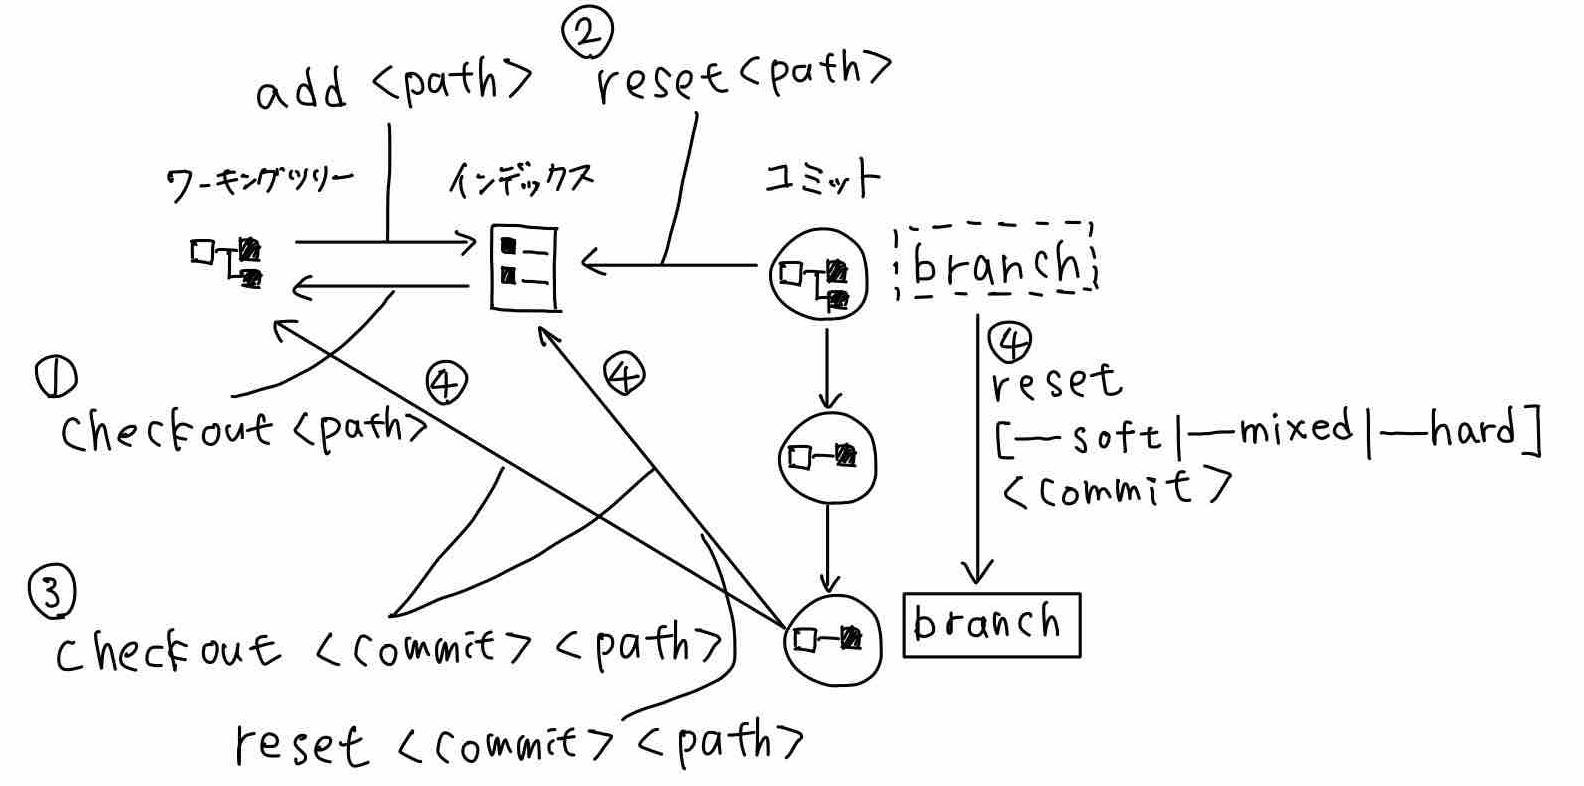 ②
add <path>
reset <path>
ワーキングツリー
インデックス
コミット
branch
①
checkout <path>
④
④
④
reset
[--soft|--mixed|--hard]
<commit>
③
checkout <commit> <path>
branch
reset <commit> <path>